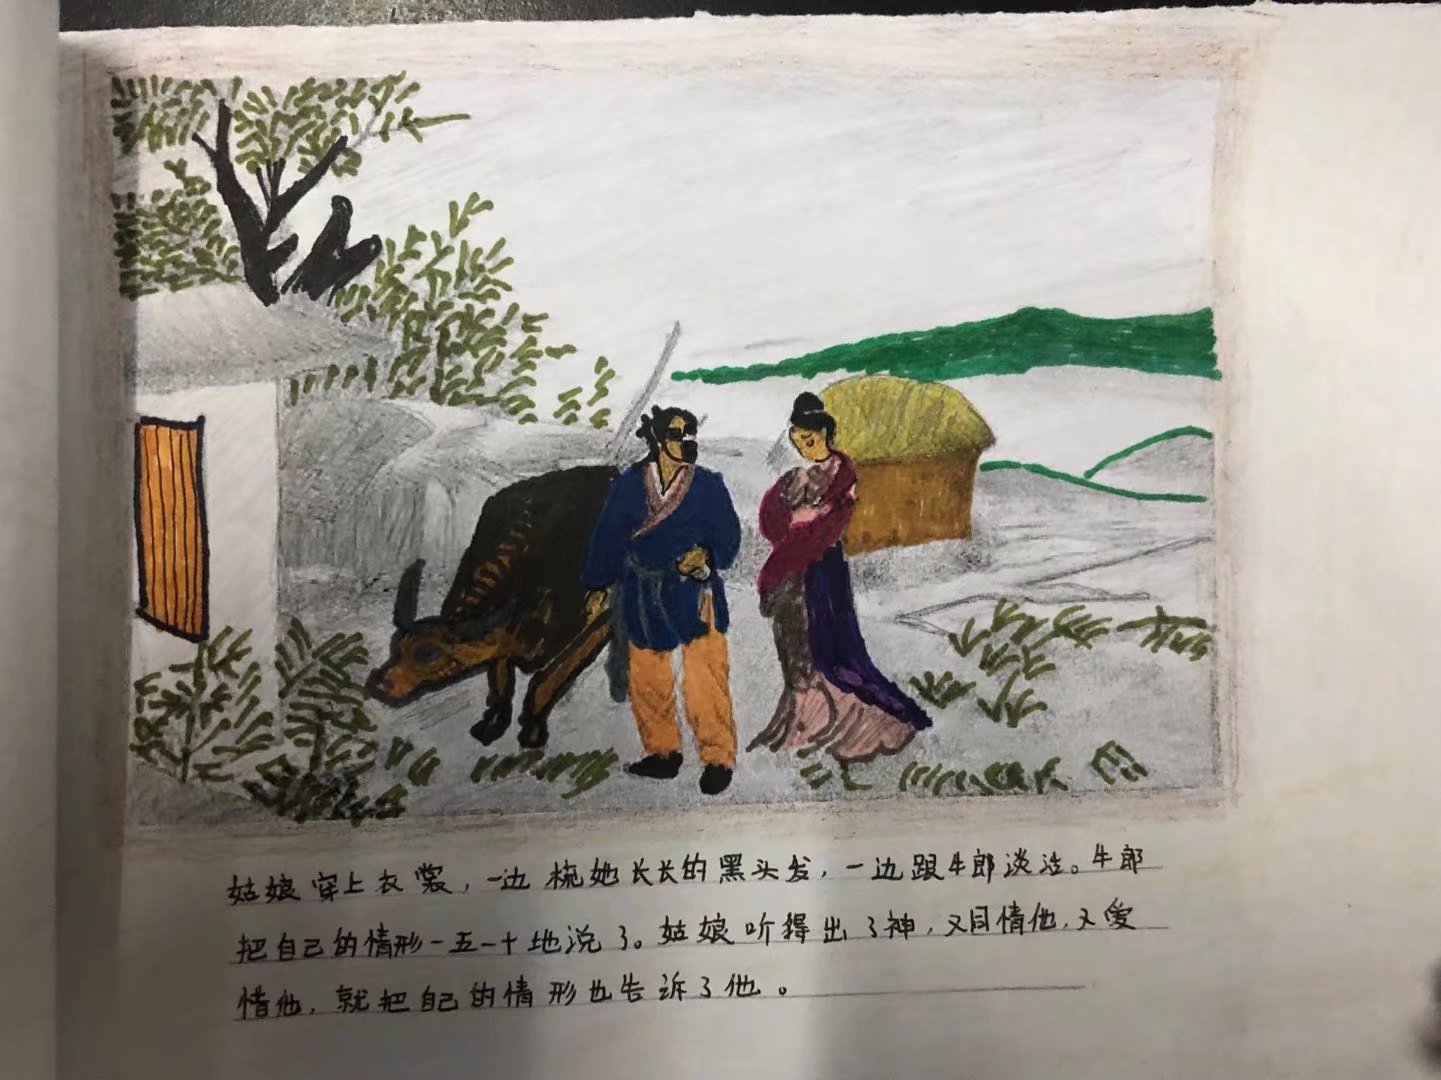 姑娘穿上衣裳，一边梳她长长的黑头发，一边跟牛郎谈话。牛郎
把自己的情形一五一十地说了。姑娘听得出了神，又同情他，又爱
惜他，就把自己的情形也告诉了他。